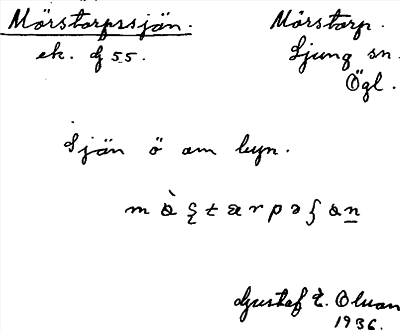 Mörstorpssjön.
ek. g 55.
Mörstorp.
Ljung sn.
Ögl.
Sjön ö om byn.
Gustaf E. Olsson
1936.